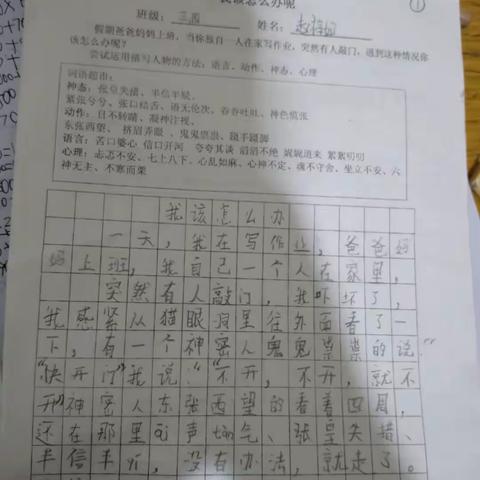 我该怎么办呢
①
班级：三四
姓名：
假期爸爸妈妈上班，当你独自一人在家写作业，突然有人敲门，遇到这种情况你
该怎么办呢？
尝试运用描写人物的方法：语言、动作、神态、心理
词语超市：
神态：张皇失措、半信半疑、
紧张兮兮、张口结舌、语无伦次、吞吞吐吐、神色慌张
动作：目不转睛、凝神注视、
东张西望、挤眉弄眼、鬼鬼祟祟、蹑手蹑脚
语言：苦口婆心 信口开河 夸夸其谈 滔滔不绝 娓娓道来 絮絮叨叨
心理：忐忑不安、七上八下、心乱如麻、心神不定、魂不守舍、坐立不安、六
神无主、不寒而栗
我该怎么办
一天，我在写作业，爸爸妈
妈上班，我自己一个人在家里，
突然有人敲门，我吓坏了，
我感紧从猫眼洞里往外面看了一
下，有一个神密人鬼鬼祟祟的说：“
“快开门”我说：“不开，不开，就不
开”神密人东张西望的看着四周，
还在那里āi声tàn气、张皇失措、
半信半yí，没有办法，就走了。